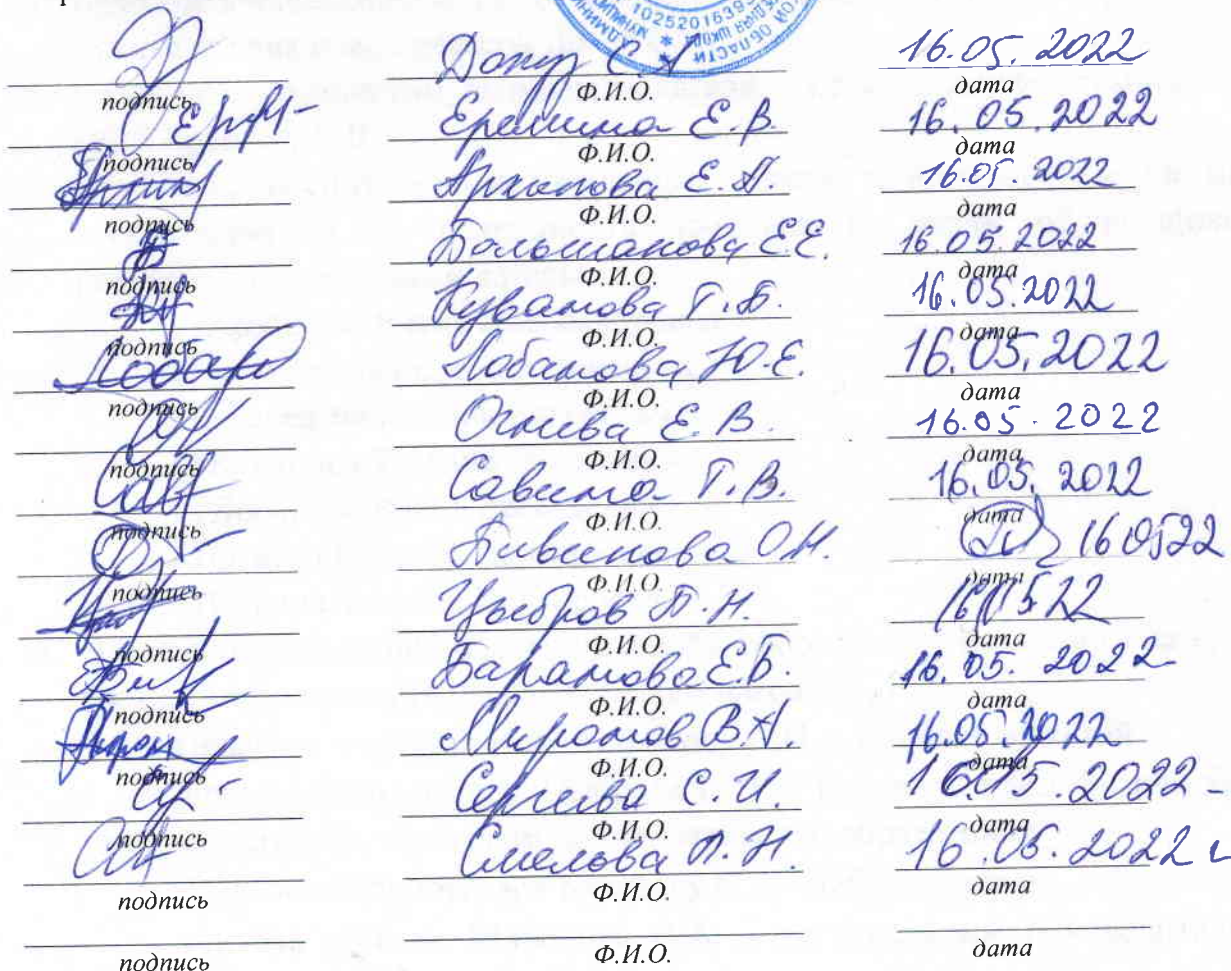 16.05.2022
подпись Ф.И.О. дата
Еремина Е.В. 16.05.2022
подпись Ф.И.О. дата
Архипова Е.А. 16.05.2022
подпись Ф.И.О. дата
Большакова Е.Е. 16.05.2022
подпись Ф.И.О. дата
Куванова Т.Б. 16.05.2022
подпись Ф.И.О. дата
Лобанова Ю.Е. 16.05.2022
подпись Ф.И.О. дата
Огнева Е.В. 16.05.2022
подпись Ф.И.О. дата
Сав Савина Т.В. 16.05.2022
подпись Ф.И.О. дата
Бивинова О.Н. 160522
подпись Ф.И.О. дата
Цыбров П.Н. 160522
подпись Ф.И.О. дата
Баранова Е.Б. 16.05.2022
подпись Ф.И.О. дата
Миронов В.А. 16.05.2022
подпись Ф.И.О. дата
Сергеева С.И. 16.05.2022
подпись Ф.И.О. дата
Смелова Л.Н. 16.05.2022
подпись Ф.И.О. дата
подпись Ф.И.О. дата